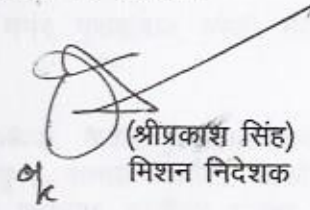 (श्रीप्रकाश सिंह)
मिशन निदेशक